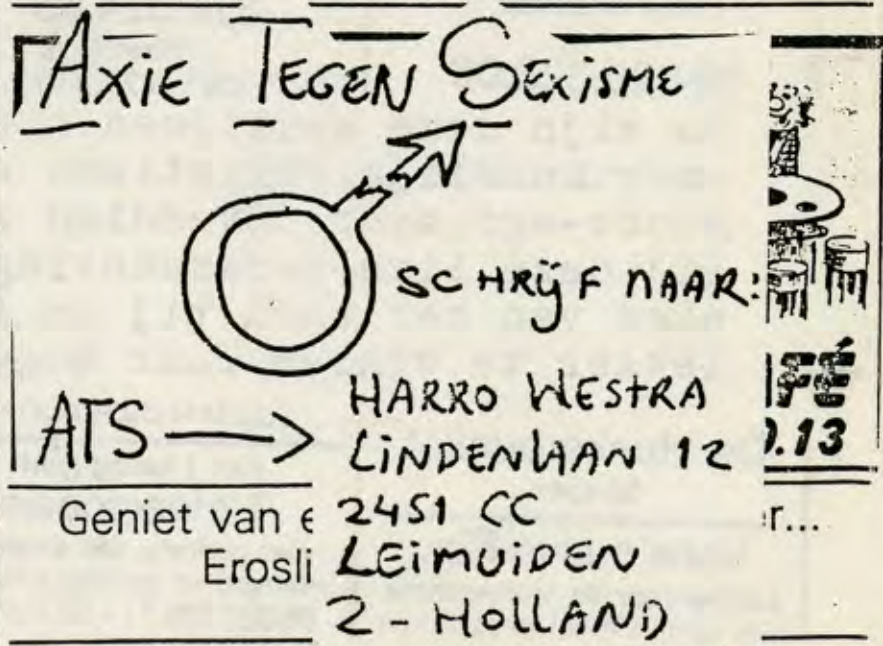 AXIE TEGEN SEXISME
SCHRIJF NAAR:
ATS
HARRO WESTRA
LINDENLAAN 12
2451 CC
LEIMUIDEN
Z-HOLLAND
FÉ
.13
Geniet van e
r...
Erosli